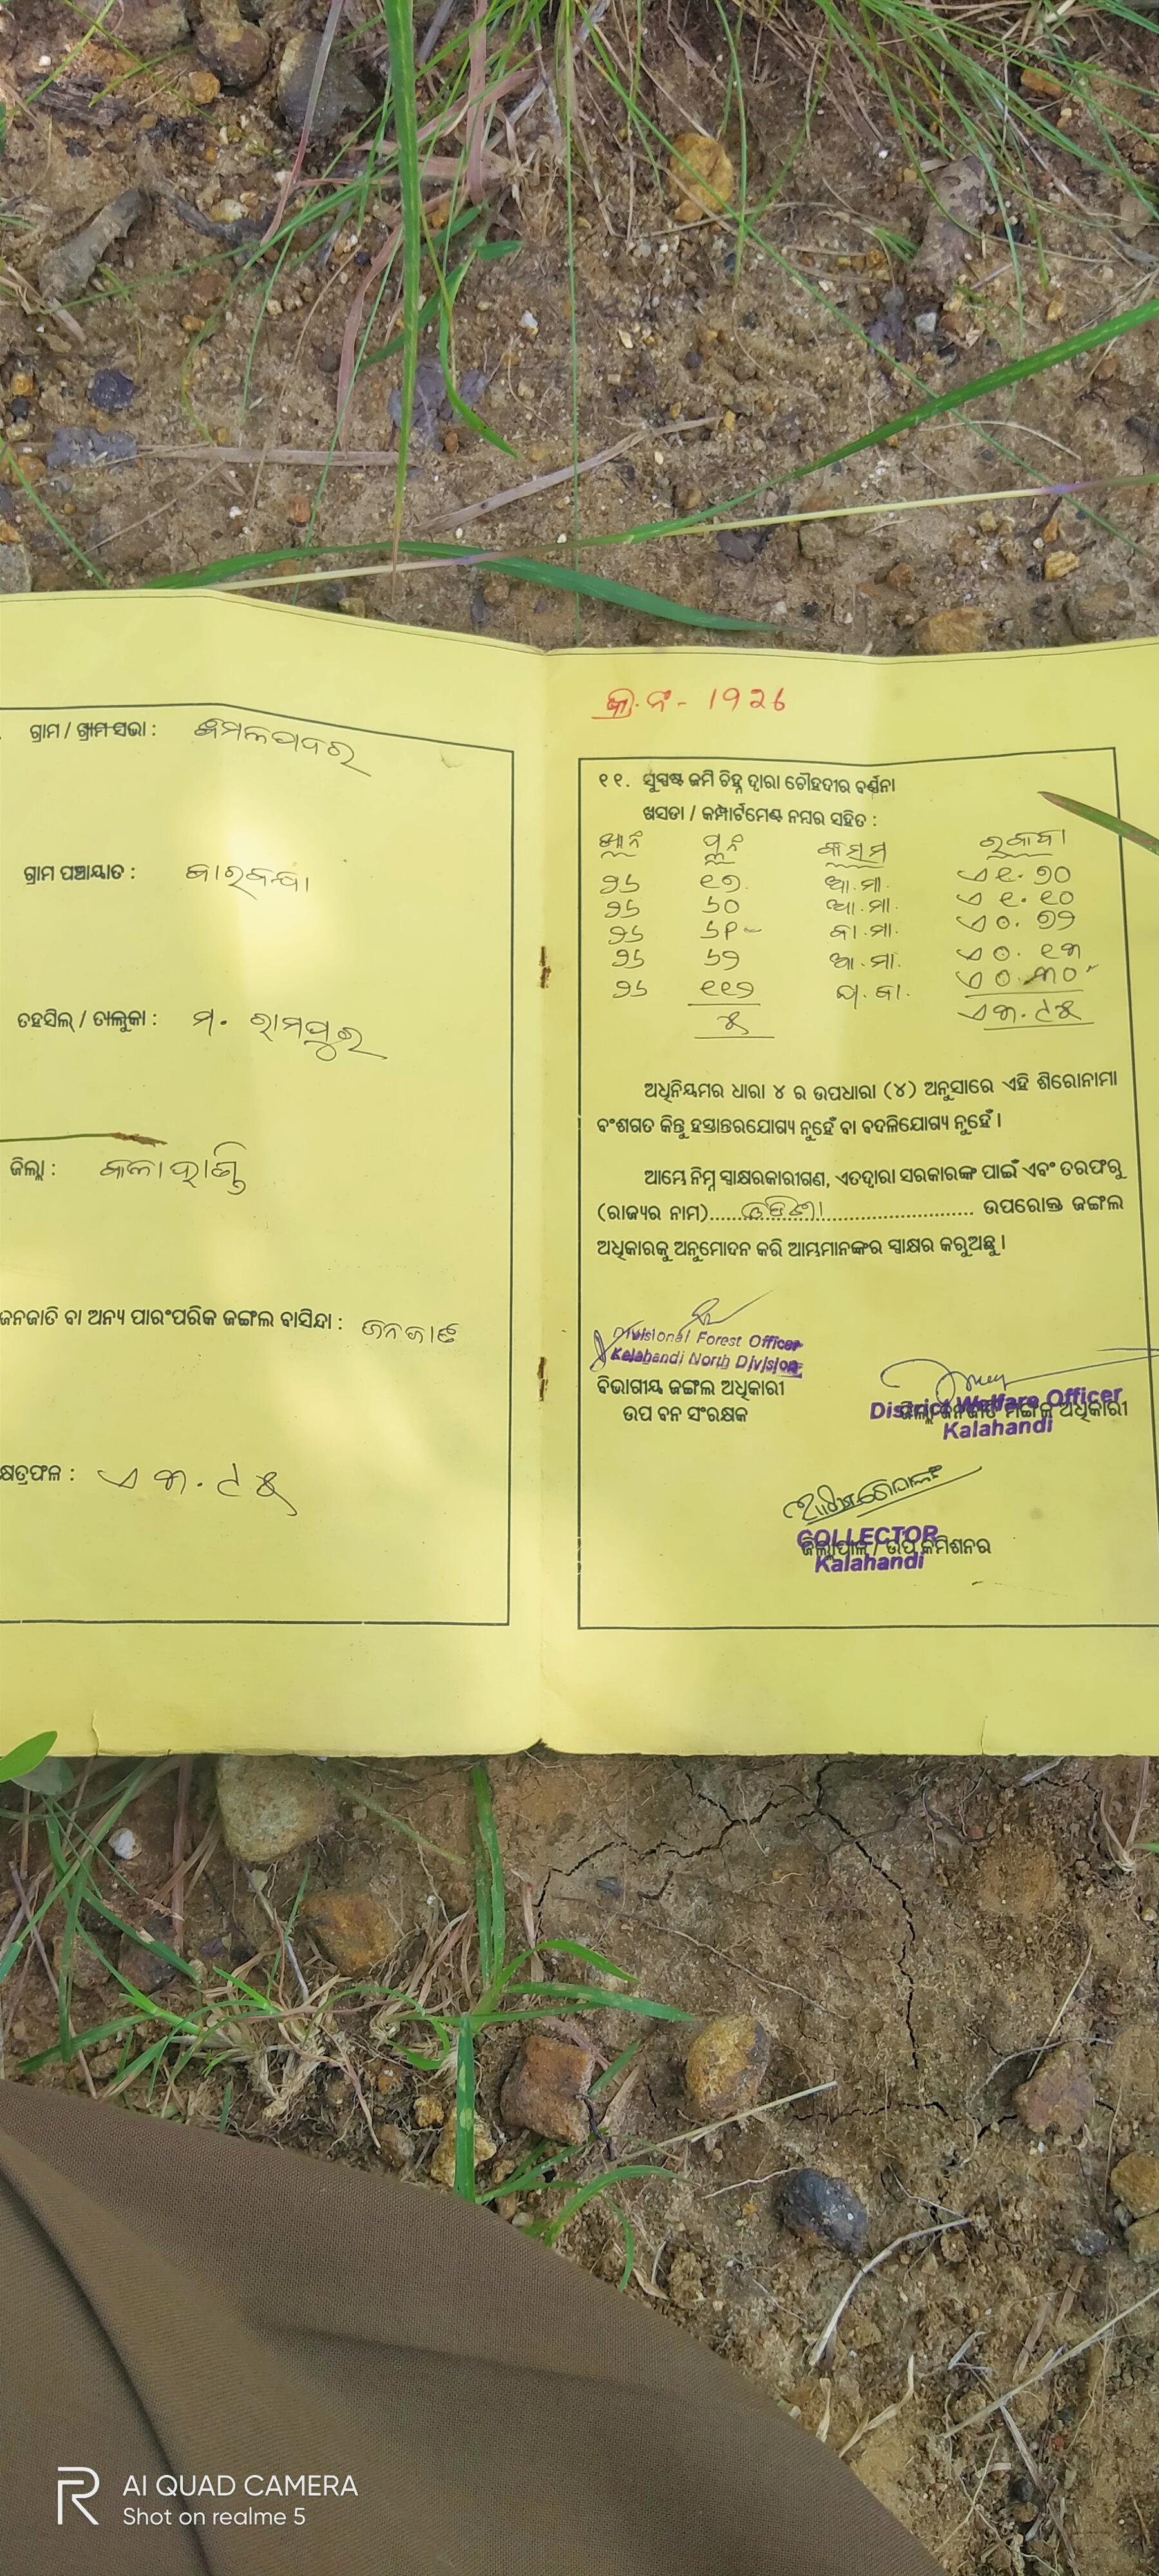 ଗ୍ରାମ / ଗ୍ରାମସଭା :
ଗ୍ରାମ ପଞ୍ଚାୟାତ :
ତହସିଲ୍ / ତାଳୁକା : ମ. ରାମପୁର
ଜିଲ୍ଲା : କଳାହାଣ୍ଡି
ଜନଜାତି ବା ଅନ୍ୟ ପାରଂପରିକ ଜଙ୍ଗଲ ବାସିନ୍ଦା : ଜନଜାତି
କ୍ଷେତ୍ରଫଳ : ଏ ୩.୯୫
କ୍ର.ନଂ - 1926
୧୧. ସୁସ୍ପଷ୍ଟ ଜମି ଚିହ୍ନ ଦ୍ୱାରା ଚୌହଦୀର ବର୍ଣ୍ଣନା
ଖସଡା / କମ୍ପାର୍ଟମେଣ୍ଟ ନମ୍ବର ସହିତ :
ଖା.ନଂ ପ୍ଲ.ନଂ କିସମ ରକବା
ଆ.ମା.
ଆ.ମା.
ବା.ମା.
ଆ.ମା.
୫ ଏ ୩.୯୫
ଅଧିନିୟମର ଧାରା ୪ ର ଉପଧାରା (୪) ଅନୁସାରେ ଏହି ଶିରୋନାମା
ବଂଶଗତ କିନ୍ତୁ ହସ୍ତାନ୍ତରଯୋଗ୍ୟ ନୁହେଁ ବା ବଦଳିଯୋଗ୍ୟ ନୁହେଁ ।
ଆମ୍ଭେ ନିମ୍ନ ସ୍ୱାକ୍ଷରକାରୀଗଣ, ଏତଦ୍ୱାରା ସରକାରଙ୍କ ପାଇଁ ଏବଂ ତରଫରୁ
(ରାଜ୍ୟର ନାମ)...... ଓଡିଶା ...... ଉପରୋକ୍ତ ଜଙ୍ଗଲ
ଅଧିକାରକୁ ଅନୁମୋଦନ କରି ଆମ୍ଭମାନଙ୍କର ସ୍ୱାକ୍ଷର କରୁଅଛୁ ।
Divisional Forest Officer
Kalahandi North Division
ବିଭାଗୀୟ ଜଙ୍ଗଲ ଅଧିକାରୀ
ଉପ ବନ ସଂରକ୍ଷକ
District Welfare Officer
ଜିଲ୍ଲା ଜନଜାତି ମଙ୍ଗଳ ଅଧିକାରୀ
Kalahandi
COLLECTOR
ଜିଲ୍ଲାପାଳ / ଉପ କମିଶନର
Kalahandi
AI QUAD CAMERA
Shot on realme 5